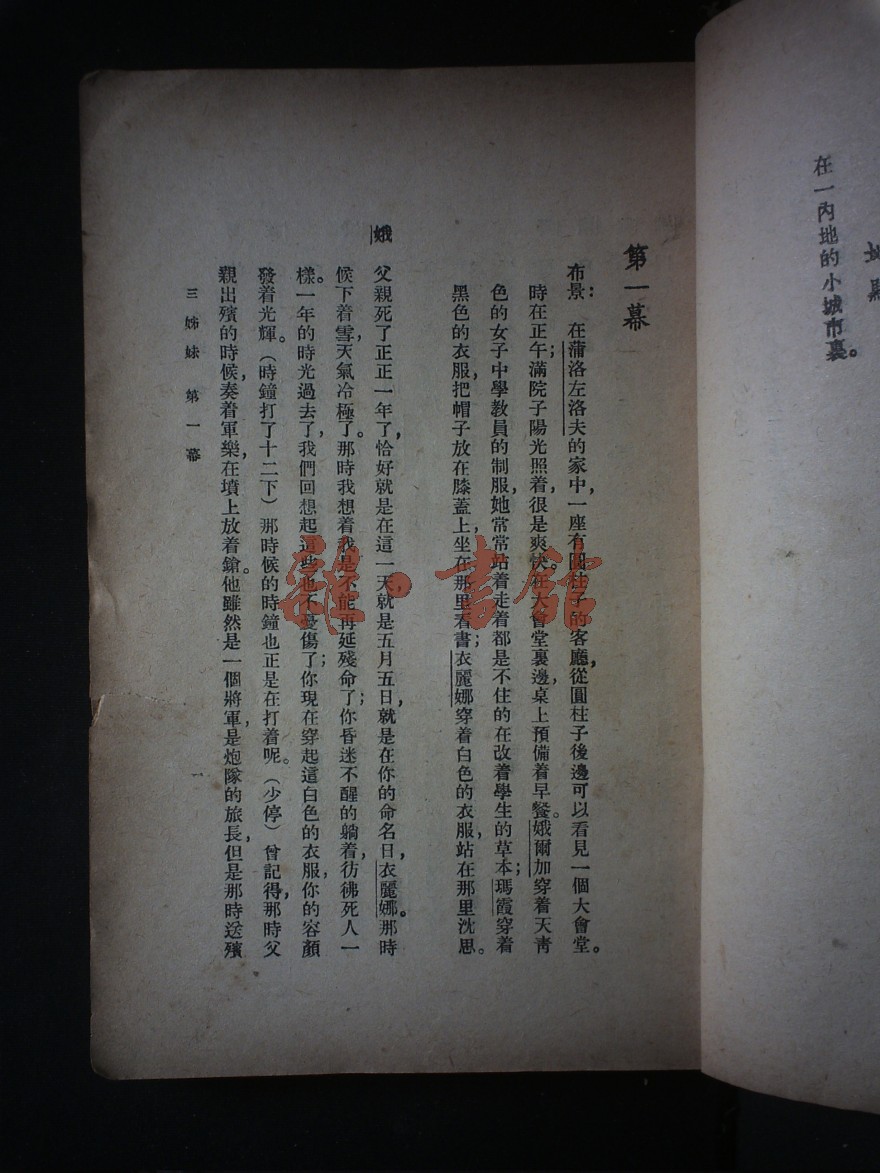 地點
在一內地的小城市裏。
第一幕
布景：在蒲洛左洛夫的家中，一座有圓柱子的客廳，從圓柱子後邊可以看見一個大會堂。
時在正午；滿院子陽光照着，很是爽快。在大會堂裏邊，桌上預備着早餐。娥爾加穿着天靑
色的女子中學敎員的制服，她常常站着走着都是不住的在改着學生的草本；瑪霞穿着
黑色的衣服，把帽子放在膝蓋上，坐在那里看書；衣麗娜穿着白色的衣服，站在那里沈思。
娥　父親死了正正一年了，恰好就是在這一天，就是五月五日，就是在你的命名日，衣麗娜。那時
候下着雪，天氣冷極了。那時我想着我是不能再延殘命了；你昏迷不醒的躺着，彷彿死人一
樣。一年的時光過去了，我們回想起這些也不憂傷了；你現在穿起這白色的衣服，你的容顏
發着光輝。（時鐘打了十二下）那時候的時鐘也正是在打着呢。（少停）曾記得，那時父
親出殯的時候，奏着軍樂，在墳上放着鎗。他雖然是一個將軍，是炮隊的旅長，但是那時送殯
三姊妹　第一幕
一
雜·書館